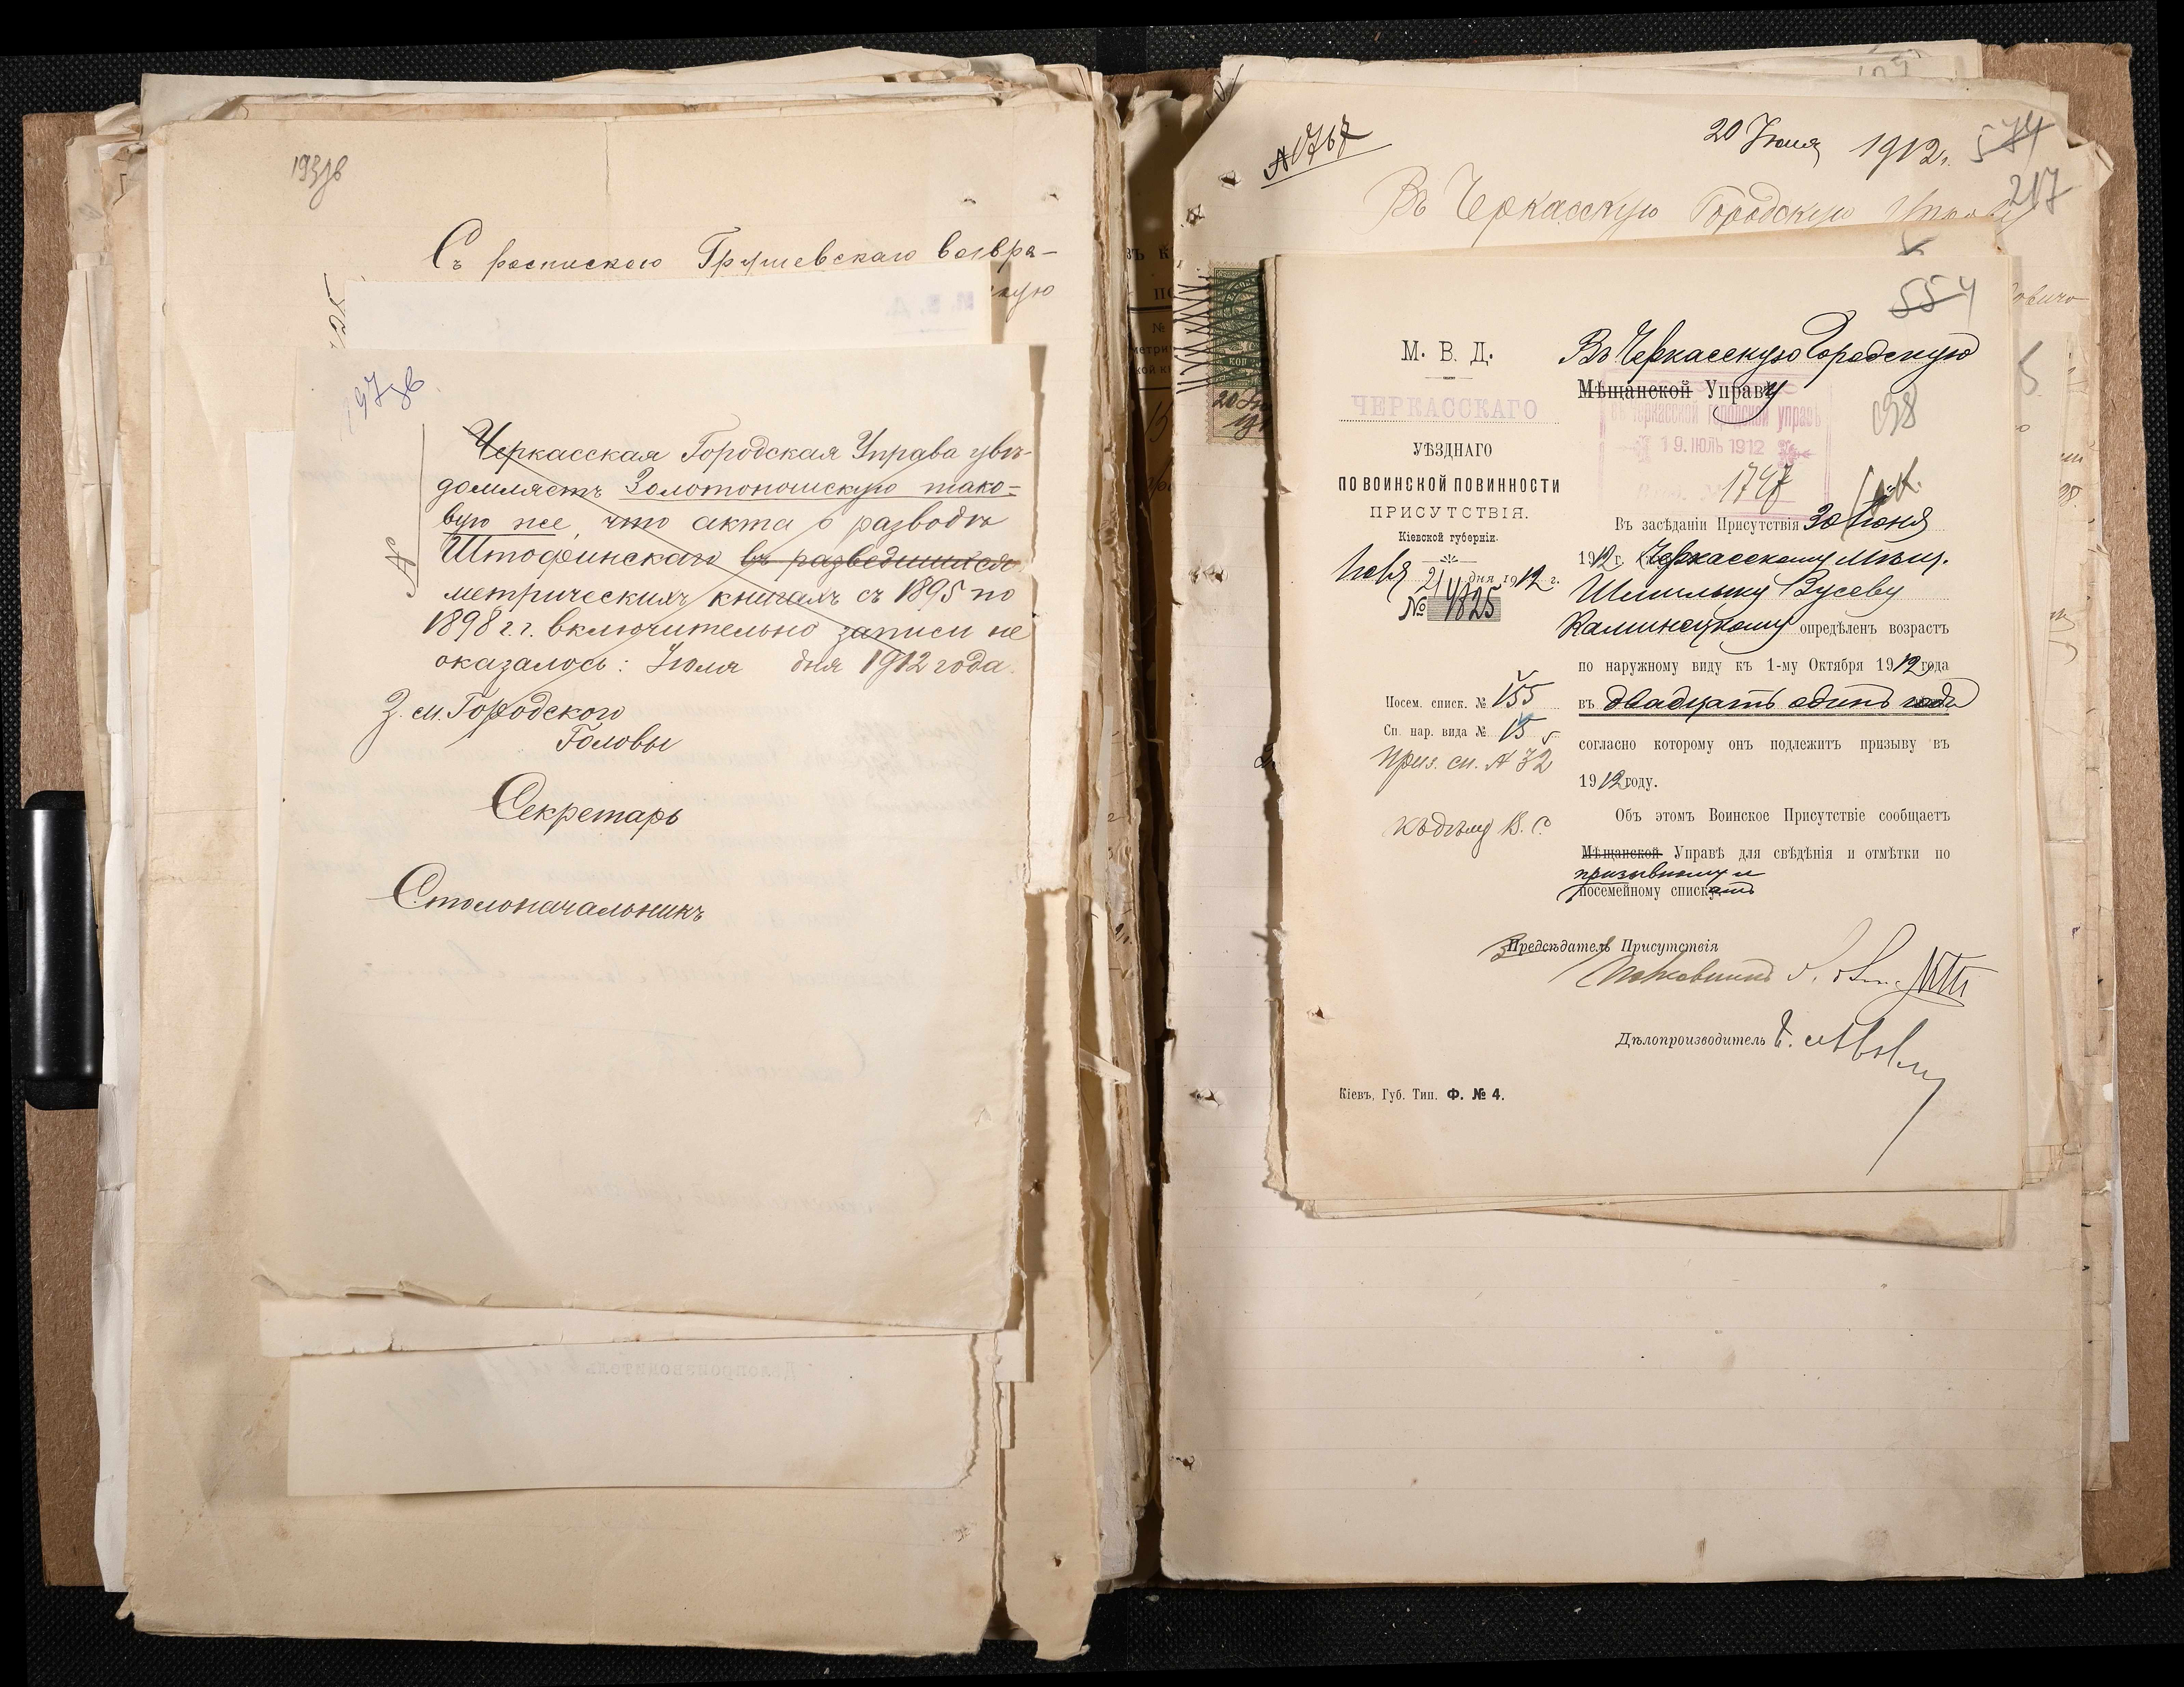 193зв
Съ роспискою Грушевскаго возвра-
197зв.
Черкасская Городская Управа увѣ-
домляетъ Золотоношскую тако-
вую же, что акта о разводѣ
Штофинскаго въ разведшихся
метрическихъ книгахъ съ 1895 по
1898 г.г. включительно записи не
оказалось: Іюля дня 1912 года.
З. м. Городского
Головы
Секретарь
Столоначальникъ
20 Іюля 1912 г.
574
217
Въ Черкасскую Городскую Управу
554
М. В. Д.
ЧЕРКАССКАГО
УѢЗДНАГО
ПО ВОИНСКОЙ ПОВИННОСТИ
ПРИСУТСТВІЯ.
Кіевской губерніи.
21 дня 1912 г.
№ 4825
Посем. списк. № 155
Сп. нар. вида № 15
приз. сп. № 32
Къ дѣлу В. С.
Въ Черкасскую Городскую
Мѣщанской Управу
Черкасской городской управѣ
19. ІЮЛЬ 1912
1747
Въ засѣданіи Присутствія 30 Іюня
1912 г. Черкасскому мѣщ.
Шмилыку Вусеву
Каминецкому опредѣленъ возрастъ
по наружному виду къ 1-му Октября 1912 года
въ двадцать одинъ годъ
согласно которому онъ подлежитъ призыву въ
1912 году.
Объ этомъ Воинское Присутствіе сообщаетъ
Мѣщанской Управѣ для свѣдѣнія и отмѣтки по
призывному и
посемейному спискамъ
Предсѣдатель Присутствія
Дѣлопроизводитель
Кіевъ, Губ. Тип. Ф. № 4.